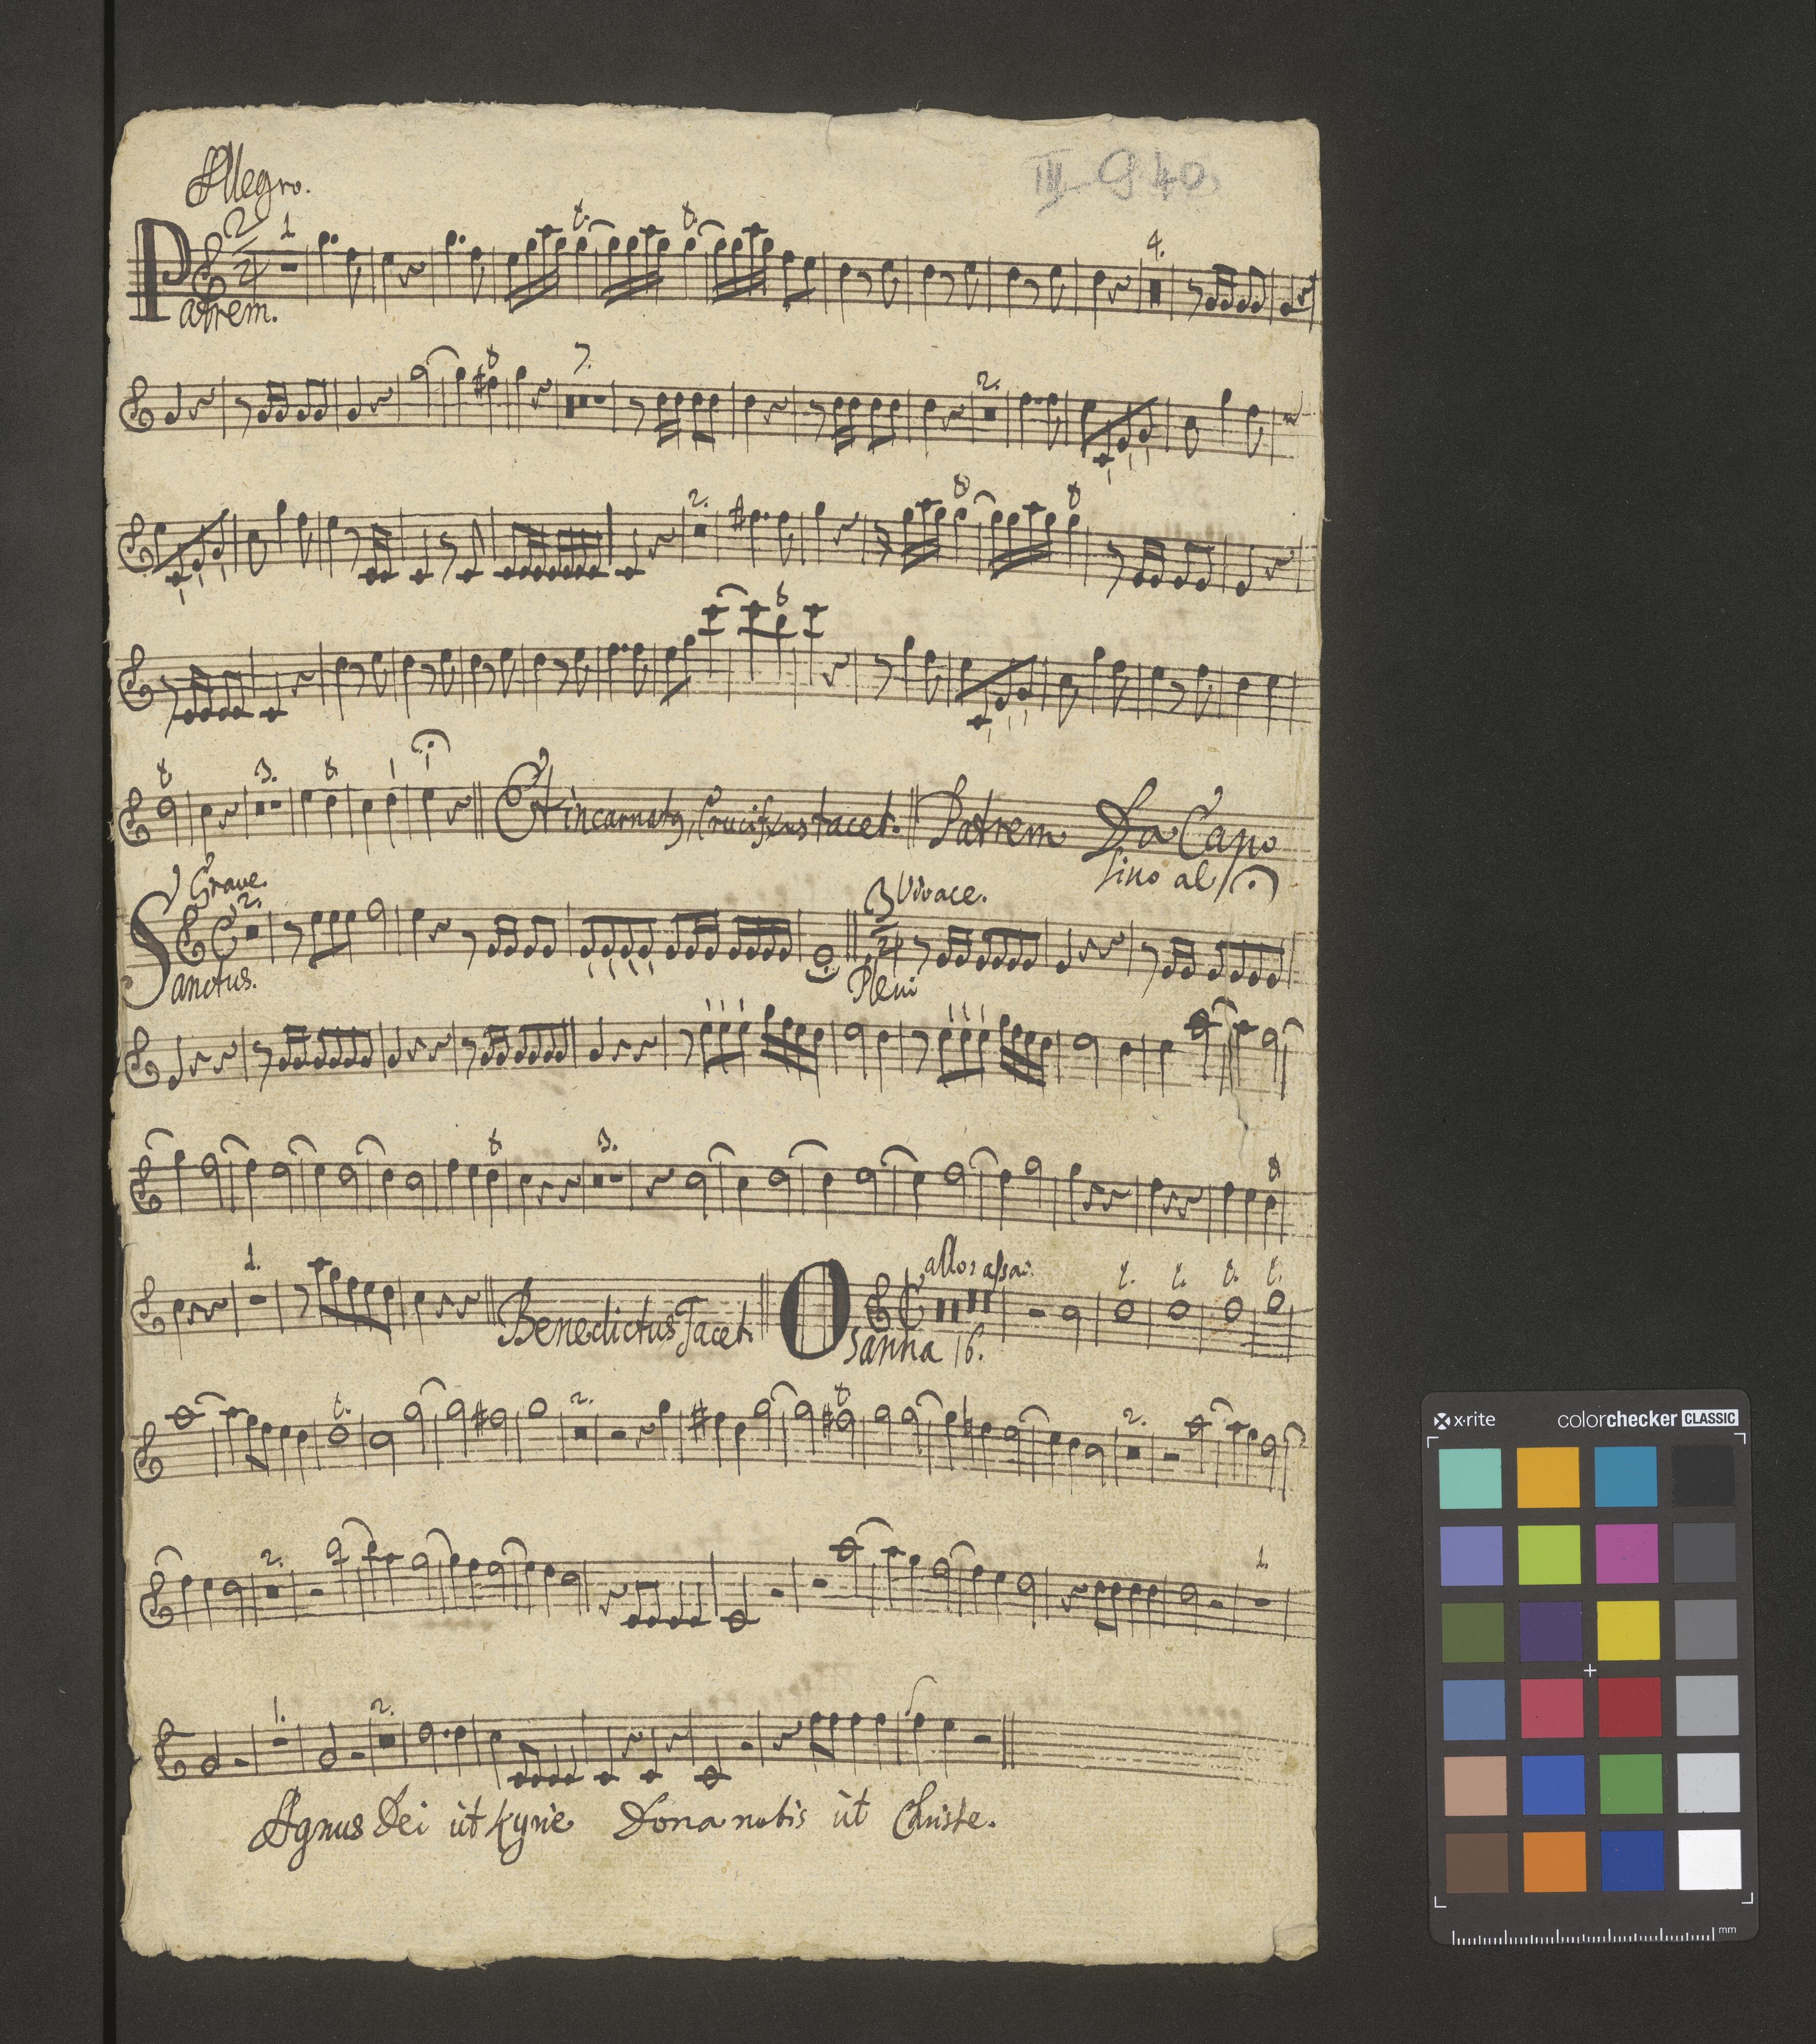 Allegro.
III 940
2/4
1
t.
t.
4.
Patrem.
7.
2.
2.
3.
Et incarnatq, Crucifixus tacet. Patrem Da Capo
sino al
Grave.
2.
3/4 Vivace.
Sanctus.
Pleni
3.
1.
Benedictus Tacet.
allo: assai:
t. t. t. t.
Osanna 16.
t.
2.
2.
2.
1.
1.
2.
Agnus Dei ut Kyrie Dona nobis ut Christe.
x·rite
colorchecker CLASSIC
mm